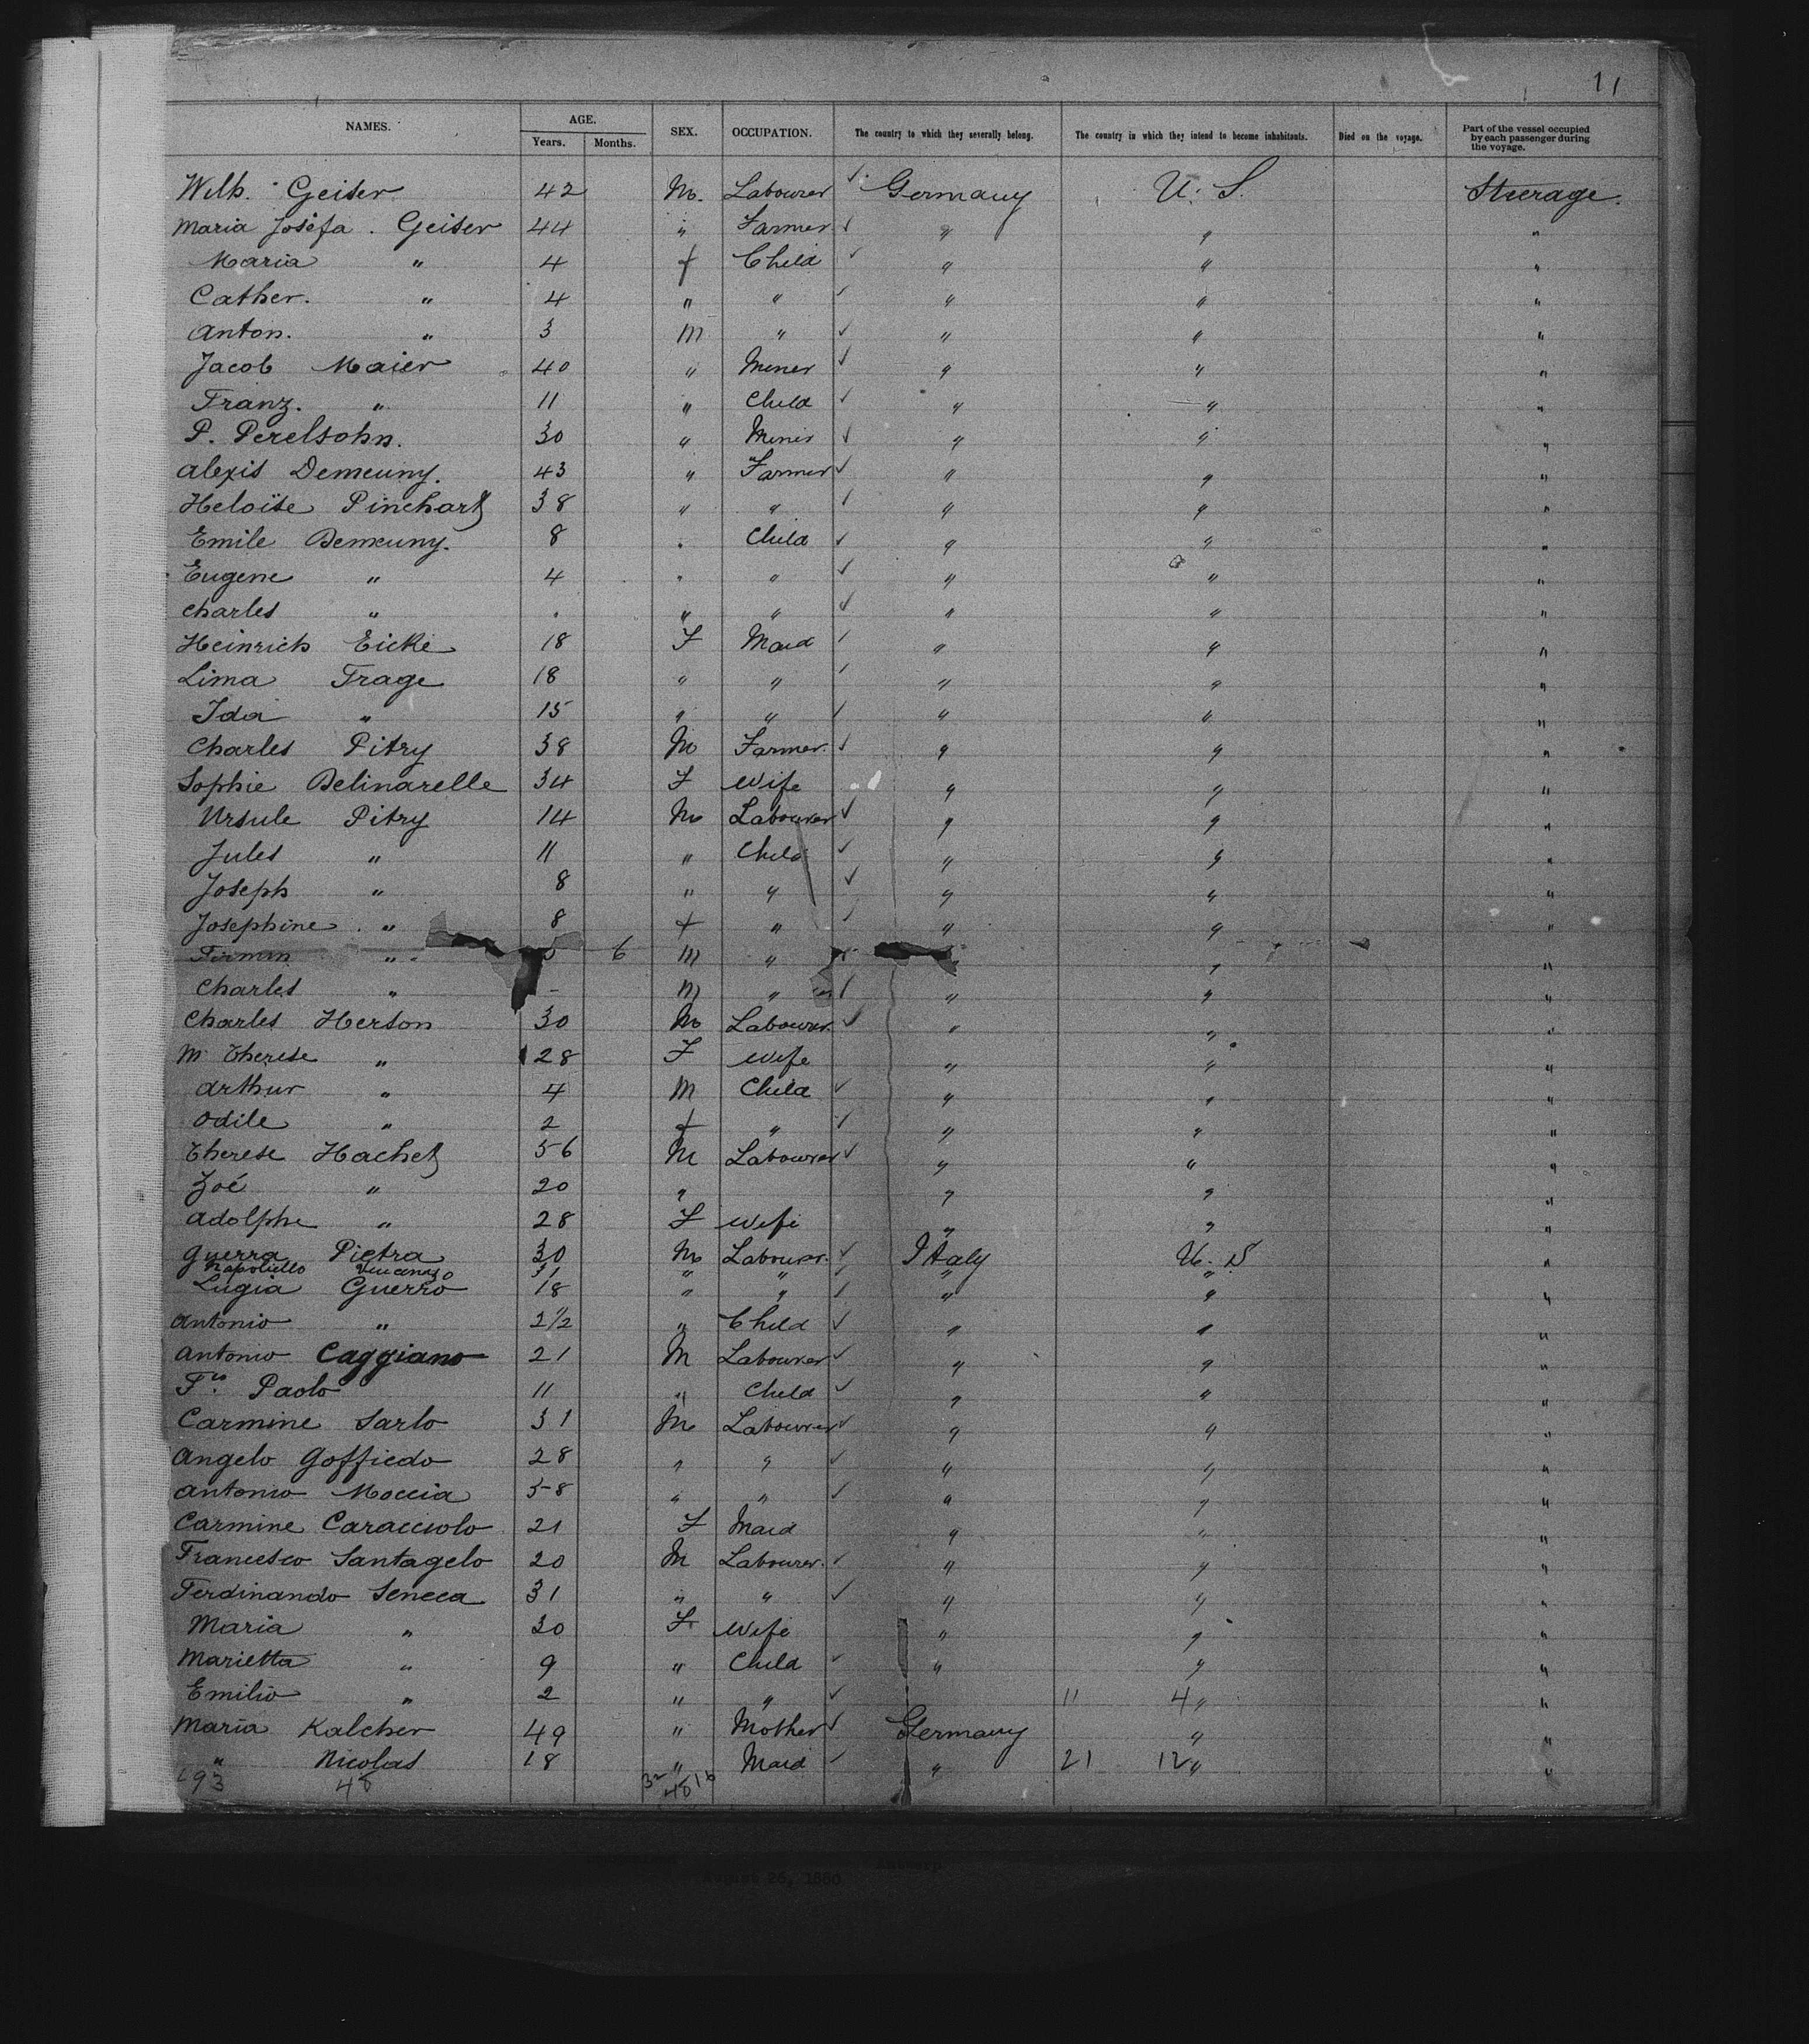 11
NAMES. AGE. SEX. OCCUPATION. The country to which they severally belong. The country in which they intend to become inhabitants. Died on the voyage. Part of the vessel occupied by each passenger during the voyage.
Years. Months.
Wilh. Geiser 42 M. Labourer ✓ Germany U. S. Steerage.
Maria Joséfa. Geiser 44 " Farmer ✓ " " "
Maria " 4 f Child ✓ " " "
Cather. " 4 " " ✓ " " "
Anton. " 3 M " ✓ " " "
Jacob Maier 40 " Miner ✓ " " "
Franz. " 11 " Child ✓ " " "
P. Perelsohn. 30 " Miner ✓ " " "
Alexis Demeuny. 43 " Farmer ✓ " " "
Heloïse Pinchart 38 " " ✓ " " "
Emile Demeuny. 8 " Child ✓ " " "
Eugene " 4 " " ✓ " " "
Charles " " " " ✓ " " "
Heinrich Eicke 18 F Maid ✓ " " "
Lima Trage 18 " " ✓ " " "
Ida " 15 " " ✓ " " "
Charles Pitry 38 M Farmer. ✓ " " "
Sophie Delinarelle 34 F Wife " " "
Ursule Pitry 14 M Labourer ✓ " " "
Jules " 11 " Child ✓ " " "
Joseph " 8 " " ✓ " " "
Josephine " 8 f " ✓ " " "
Firmin " 6 M " " " "
Charles " - M " ✓ " " "
Charles Herson 30 M Labourer. ✓ " " "
M. Therese " 28 F Wife " " "
Arthur " 4 M Child ✓ " " "
Odile " 2 f " ✓ " " "
Therese Hachet 56 M Labourer ✓ " " "
Zoé " 20 " " " "
Adolphe " 28 F Wife " " "
Guerra Pietra 30 M Labourer. ✓ Italy U. S "
Napoliello Vincenzo 31 " " ✓ " "
Lugia Guerro 18 " " ✓ " " "
Antonio " 2 1/2 " Child ✓ " " "
Antonio Caggiano 21 M Labourer ✓ " " "
Fco. Paolo 11 " Child ✓ " " "
Carmine Sarlo 31 M Labourer ✓ " " "
Angelo Goffiedo 28 " " ✓ " " "
Antonio Moccia 58 " " ✓ " " "
Carmine Caracciolo 21 F Maid " " "
Francesco Santagelo 20 M Labourer. ✓ " " "
Ferdinando Seneca 31 " " ✓ " " "
Maria " 30 F Wife " " "
Marietta " 9 " Child ✓ " " "
Emilio " 2 " " ✓ 11 4 " "
Maria Kalcher 49 " Mother ✓ Germany " "
" Nicolas 18 " Maid ✓ " 21 12 " "
193 48 32 16
48
August 26, 1880